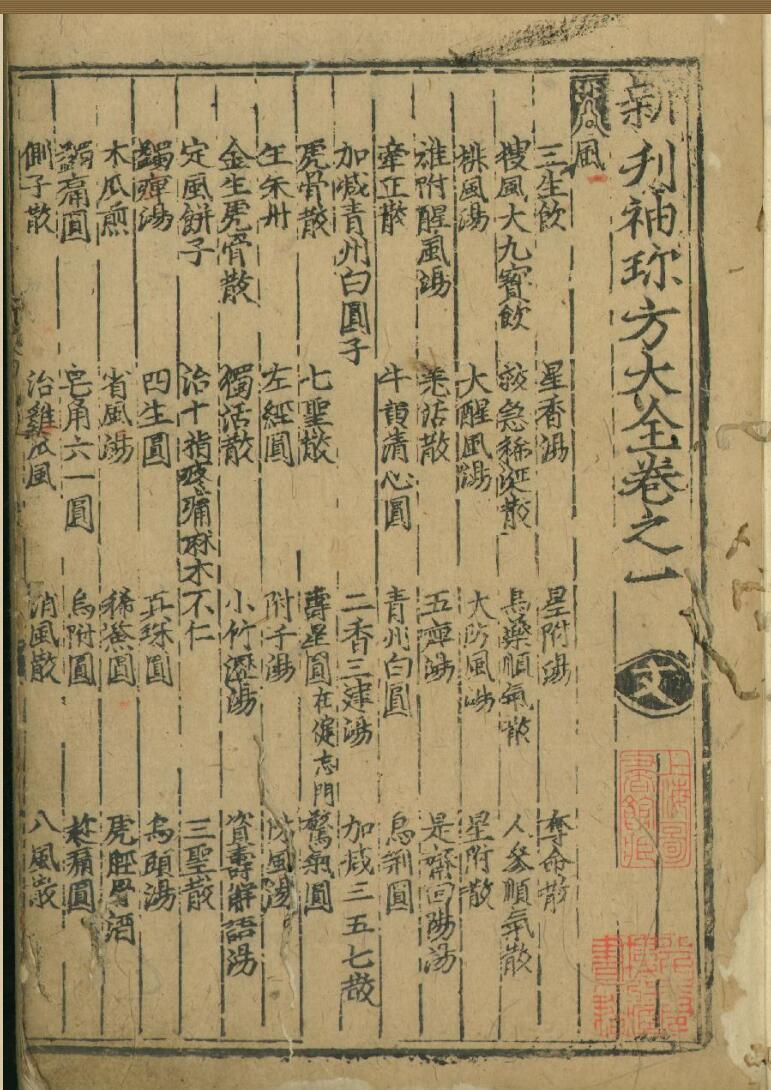 新刊袖珎方大全卷之一 文
風
三生飲 星香湯 星附湯 奪命散
搜風大九寳飲 救急稀涎散 烏藥順氣散 人參順氣散
排風湯 大醒風湯 大防風湯 星附散
雄附醒風湯 羗活散 五痹湯 是齋回陽湯
牽正散 牛黄清心圓 青州白圓 烏荆圓
加减青州白圓子 二香三建湯 加减三五七散
虎骨散 七聖散 壽星圓在健忘門 驚氣圓
左經圓 附子湯 防風湯
金生虎骨散 獨活散 小竹瀝湯 資壽觧語湯
定風餅子 治十指疼痛麻木不仁 三聖散
蠲痹湯 四生圓 真珠圓 烏頭湯
木瓜煎 省風湯 稀薟圓 虎脛骨酒
蠲痛圓 皂角六一圓 烏附圓 趁痛圓
側子散 治雞爪風 消風散 八風散
上海圖書館藏